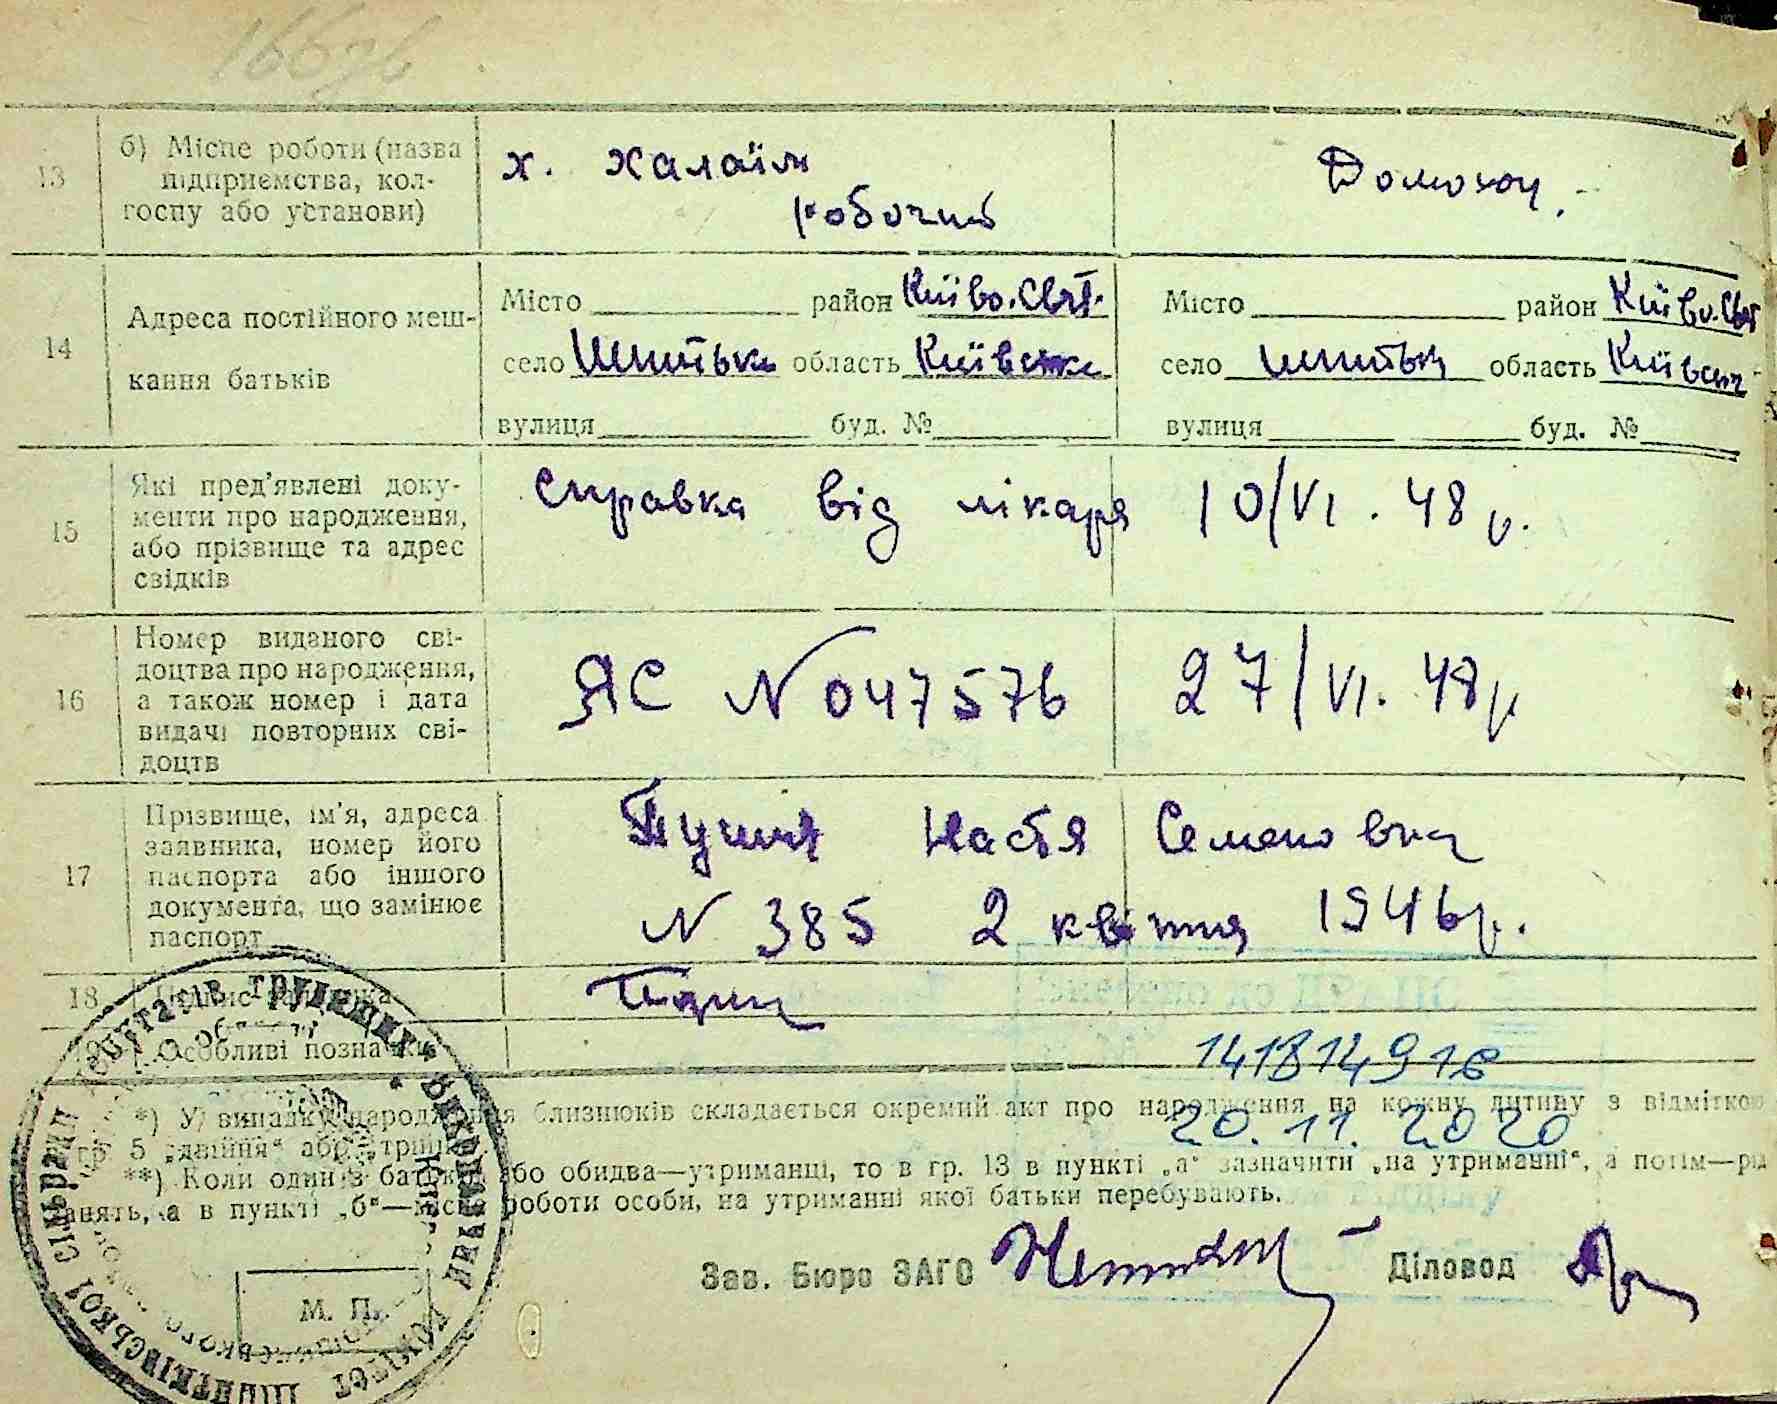 13 б) Місце роботи (назва підприємства, колгоспу або установи)
х. Халаїм
робочий
Домохоз.
14 Адреса постійного мешкання батьків
Місто район Київо.Свят.
село Шпитьки область Київська
вулиця буд. №
Місто район Київо.Свят
село Шпитьки область Київськ
вулиця буд. №
15 Які пред'явлені документи про народження, або прізвище та адрес свідків
Справка від лікаря 10/VI. 48 р.
16 Номер виданого свідоцтва про народження, а також номер і дата видачі повторних свідоцтв
ЯС N 047576 27/VI. 48р
17 Прізвище, ім'я, адреса заявника, номер його паспорта або іншого документа, що замінює паспорт
Настя Семеновна
N 385 2 квітня 1946р.
18
19 Особливі позначки
141814916
20.11.2020
*) У випадку народження близнюків складається окремий акт про народження на кожну дитину з відміткою
гр. 5 „двійня“ або „трійня“.
**) Коли один з батьків або обидва—утриманці, то в гр. 13 в пункті „а“ зазначити „на утриманні“, а потім—рід
занять, а в пункті „б“—місце роботи особи, на утриманні якої батьки перебувають.
Зав. Бюро ЗАГС Діловод
М. П.
депутатів трудящих Виконавчий комітет Шпитьківської сільради